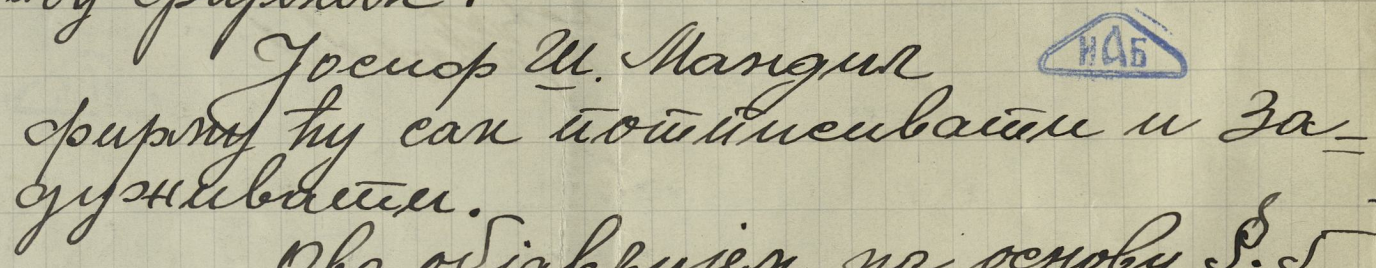 под фирмом:
Јосиф Ш. Мандил
НАБ
фирму ћу сам потписивати и за=
дуживати.
Ово објављујем на основу §. 5